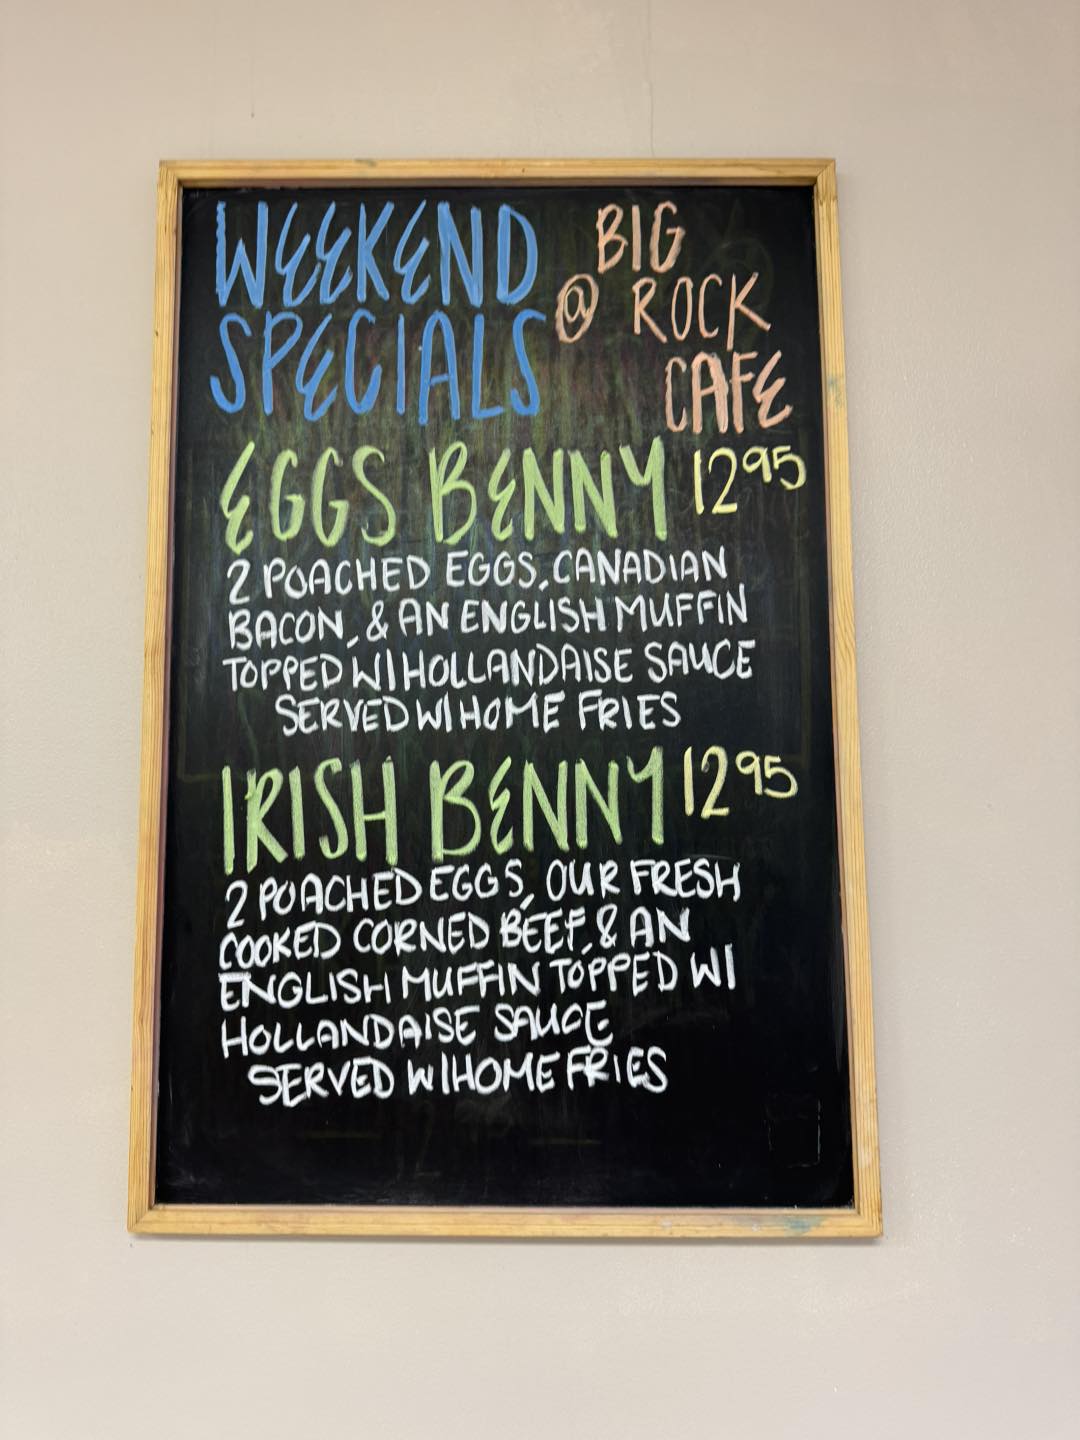 WEEKEND
SPECIALS
@ BIG
ROCK
CAFE
EGGS BENNY 12 95
2 POACHED EGGS, CANADIAN
BACON, & AN ENGLISH MUFFIN
TOPPED W/ HOLLANDAISE SAUCE
SERVED W/ HOME FRIES
IRISH BENNY 12 95
2 POACHED EGGS, OUR FRESH
COOKED CORNED BEEF, & AN
ENGLISH MUFFIN TOPPED W/
HOLLANDAISE SAUCE
SERVED W/ HOME FRIES